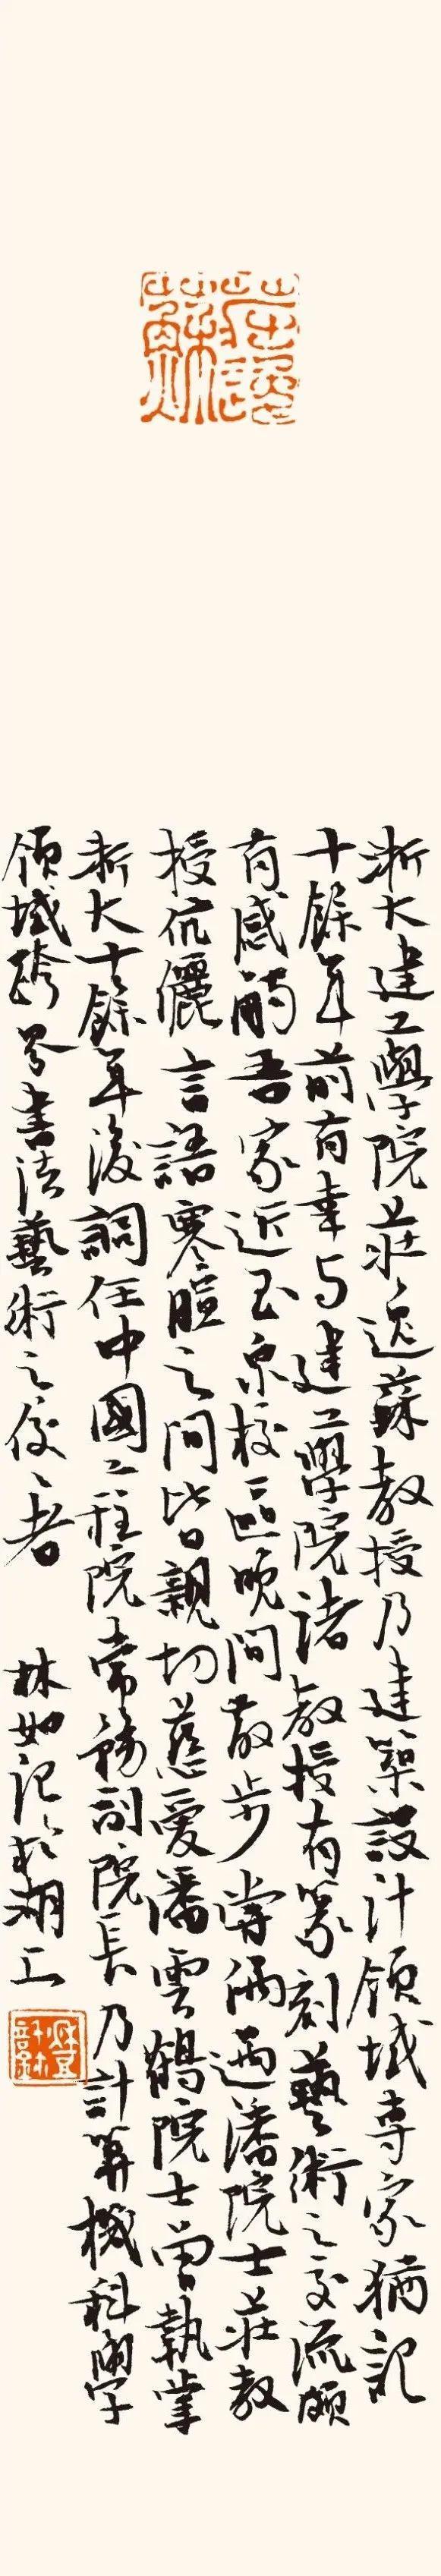 莊逸蘇
浙大建工學院莊逸蘇教授乃建築設計領域專家猶記
十餘年前有幸与建工學院諸教授有篆刻藝術之交流頗
有感觸吾家近玉泉校區晚間散步嘗偶遇潘院士莊教
授伉儷言語寒暄之间皆親切慈愛潘雲鶴院士曾執掌
浙大十餘年後詞任中國工程院常務副院長乃計算機科學
領域跨界書法藝術之佼佼者
林如记於湖上